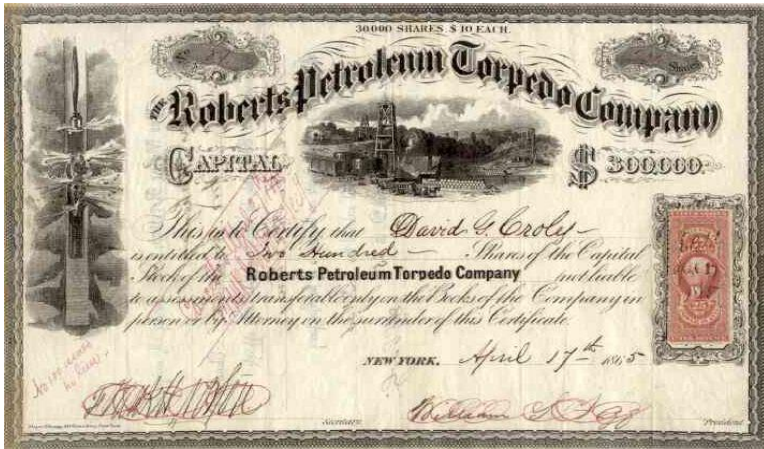 30000 SHARES $10 EACH.
No
Shares
THE Roberts Petroleum Torpedo Company
CAPITAL $300,000.
This is to Certify that David G. Croly
is entitled to Two Hundred Shares of the Capital
Stock of the Roberts Petroleum Torpedo Company not liable
to assessments transferable only on the Books of the Company in
person or by Attorney on the surrender of this Certificate.
NEW YORK. April 17th 1865
Secretary. President